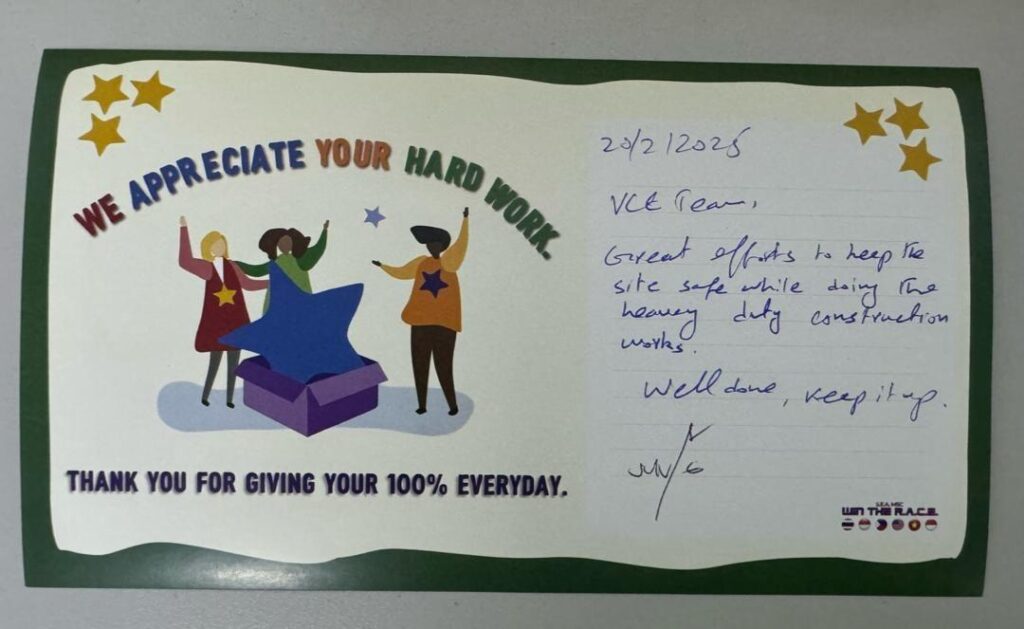 WE APPRECIATE YOUR HARD WORK.
THANK YOU FOR GIVING YOUR 100% EVERYDAY.
20/2/2025
VCE Team,
Great efforts to keep the
site safe while doing the
heavey duty construction
works.
Well done, keep it up.
SEA MSC
WIN THE R.A.C.E.